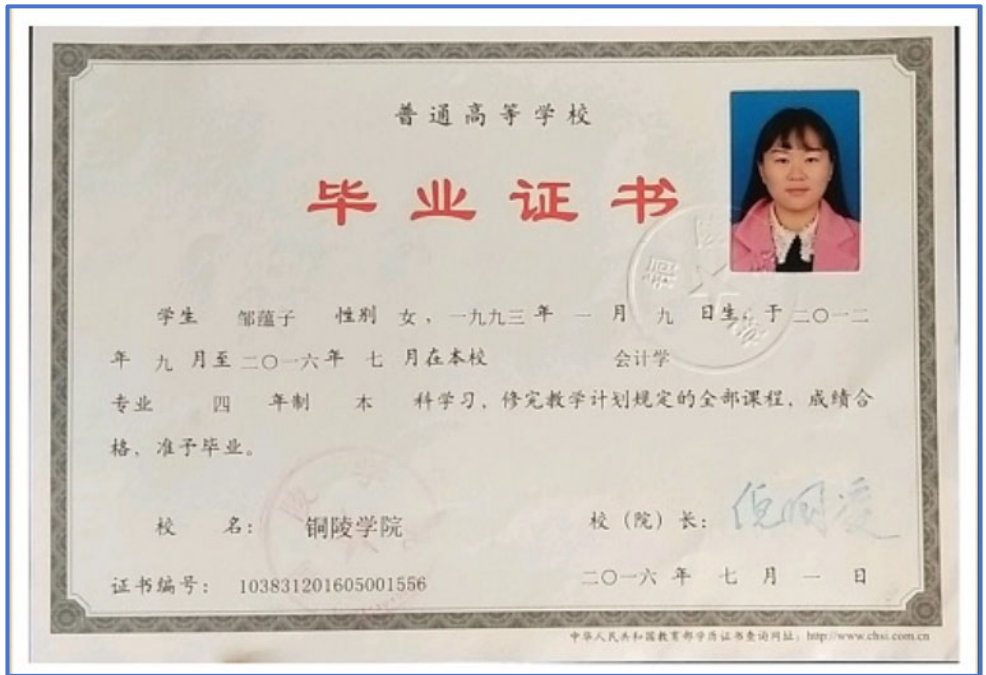 普通高等学校
毕业证书
学生 邹蕴子 性别 女，一九九三年 一 月 九 日生，于二〇一二
年 九 月至二〇一六年 七 月在本校 会计学
专业 四 年制 本 科学习，修完教学计划规定的全部课程，成绩合
格，准予毕业。
校 名： 铜陵学院
校（院）长：
证书编号： 103831201605001556
二〇一六 年 七 月 一 日
中华人民共和国教育部学历证书查询网址：http://www.chsi.com.cn